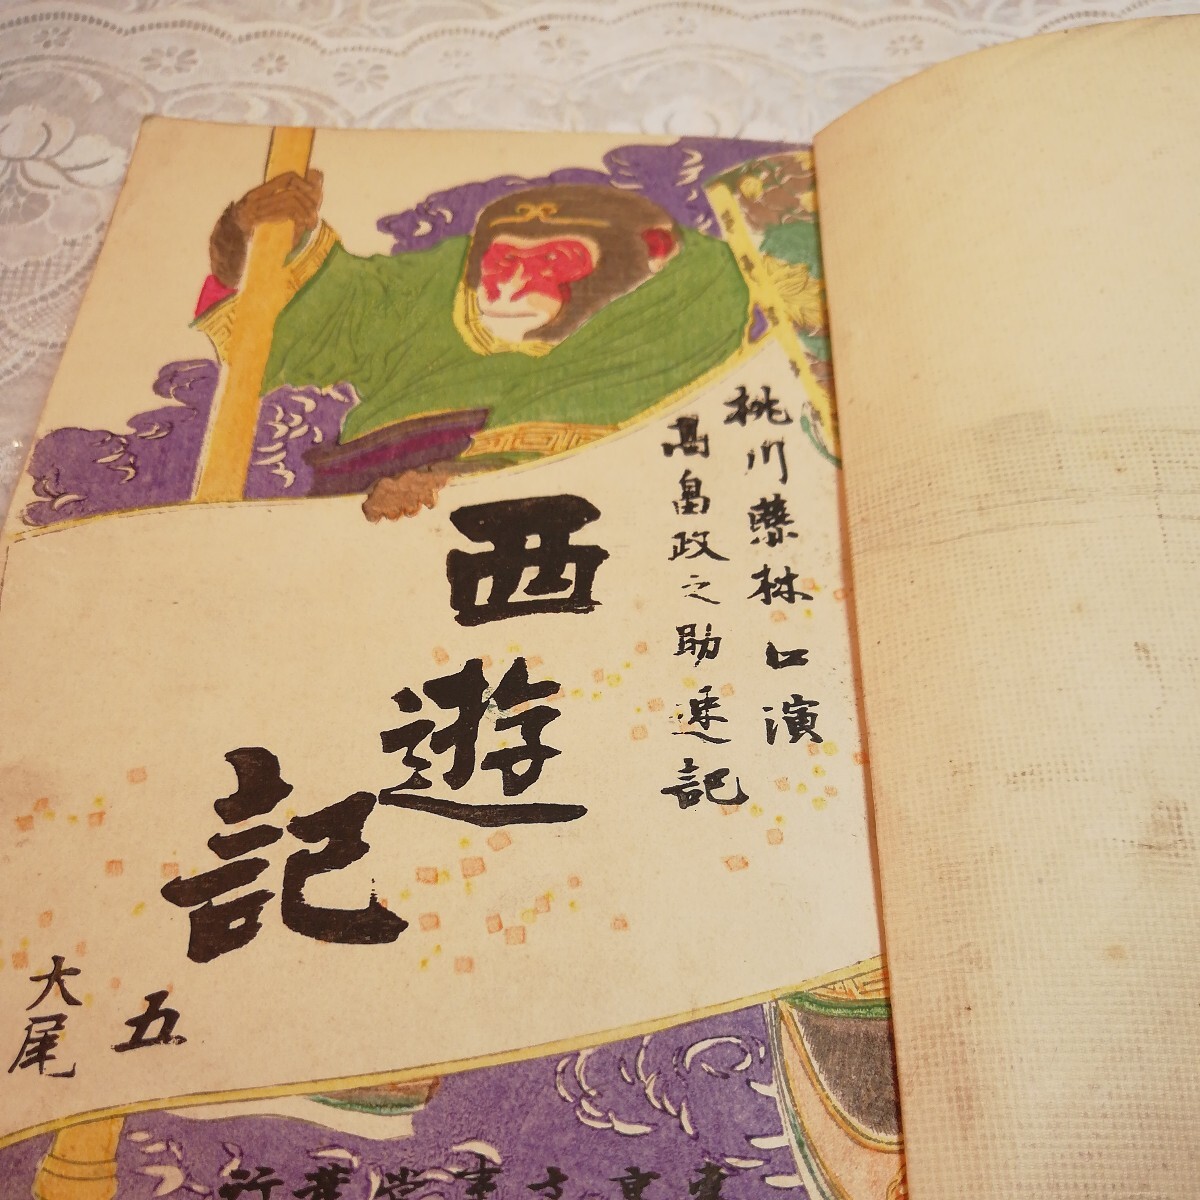 桃川燕林口演
高畠政之助速記
西遊記
五
大尾